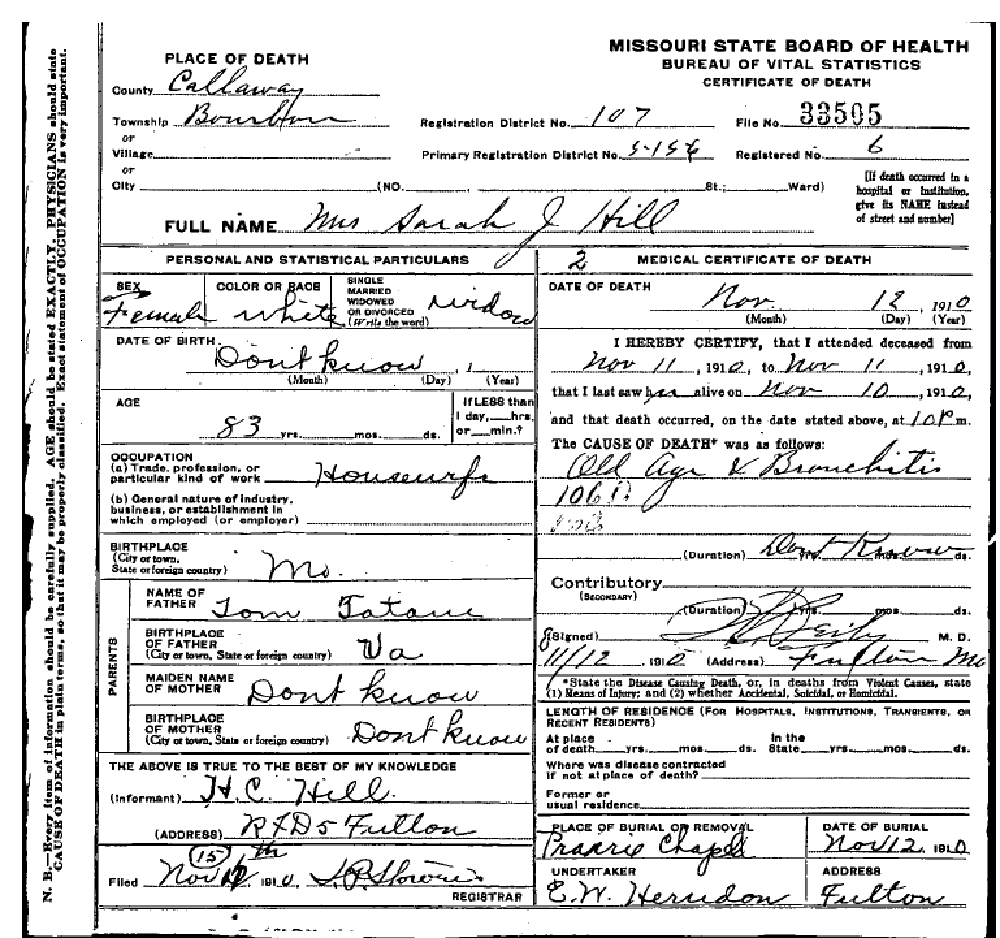 MISSOURI STATE BOARD OF HEALTH
BUREAU OF VITAL STATISTICS
CERTIFICATE OF DEATH
PLACE OF DEATH
County Callaway
Township Bourbon
or
Village
or
City (NO. St.; Ward)
Registration District No. 107 File No. 33505
Primary Registration District No. 5156 Registered No. 6
[If death occurred in a
hospital or institution,
give its NAME instead
of street and number]
FULL NAME Mrs Sarah J Hill
PERSONAL AND STATISTICAL PARTICULARS
SEX Female
COLOR OR RACE white
SINGLE
MARRIED
WIDOWED
OR DIVORCED
(Write the word) widow
DATE OF BIRTH. Dont know , 1
(Month) (Day) (Year)
AGE
83 yrs. mos. ds.
If LESS than
1 day, hrs.
or min.†
OCCUPATION
(a) Trade, profession, or
particular kind of work Housewife
(b) General nature of industry,
business, or establishment in
which employed (or employer)
BIRTHPLACE
(City or town,
State or foreign country) Mo.
PARENTS
NAME OF
FATHER Tom
BIRTHPLACE
OF FATHER
(City or town, State or foreign country) Va
MAIDEN NAME
OF MOTHER Dont know
BIRTHPLACE
OF MOTHER
(City or town, State or foreign country) Dont know
THE ABOVE IS TRUE TO THE BEST OF MY KNOWLEDGE
(Informant) H.C. Hill
(ADDRESS) RFD 5 Fulton
Filed Nov 15th 1910
REGISTRAR
2 MEDICAL CERTIFICATE OF DEATH
DATE OF DEATH Nov 12, 1910
(Month) (Day) (Year)
I HEREBY CERTIFY, that I attended deceased from
Nov 11, 1910, to Nov 11, 1910,
that I last saw her alive on Nov 10, 1910,
and that death occurred, on the date stated above, at 10 P m.
The CAUSE OF DEATH† was as follows:
Old Age & Bronchitis
106B
(Duration) Dont Know yrs. mos. ds.
Contributory
(SECONDARY)
(Duration) yrs. mos. ds.
(Signed) M. D.
11/12, 1910 (Address) Fulton Mo
*State the Disease Causing Death, or, in deaths from Violent Causes, state
(1) Means of Injury; and (2) whether Accidental, Suicidal, or Homicidal.
LENGTH OF RESIDENCE (FOR HOSPITALS, INSTITUTIONS, TRANSIENTS, OR
RECENT RESIDENTS)
At place
of death yrs. mos. ds.
In the
State yrs. mos. ds.
Where was disease contracted
if not at place of death?
Former or
usual residence
PLACE OF BURIAL OR REMOVAL
Prairie Chapel
DATE OF BURIAL
Nov 12, 1910
UNDERTAKER
E.W. Herndon
ADDRESS
Fulton
N. B.—Every item of information should be carefully supplied. AGE should be stated EXACTLY. PHYSICIANS should state
CAUSE OF DEATH in plain terms, so that it may be properly classified. Exact statement of OCCUPATION is very important.